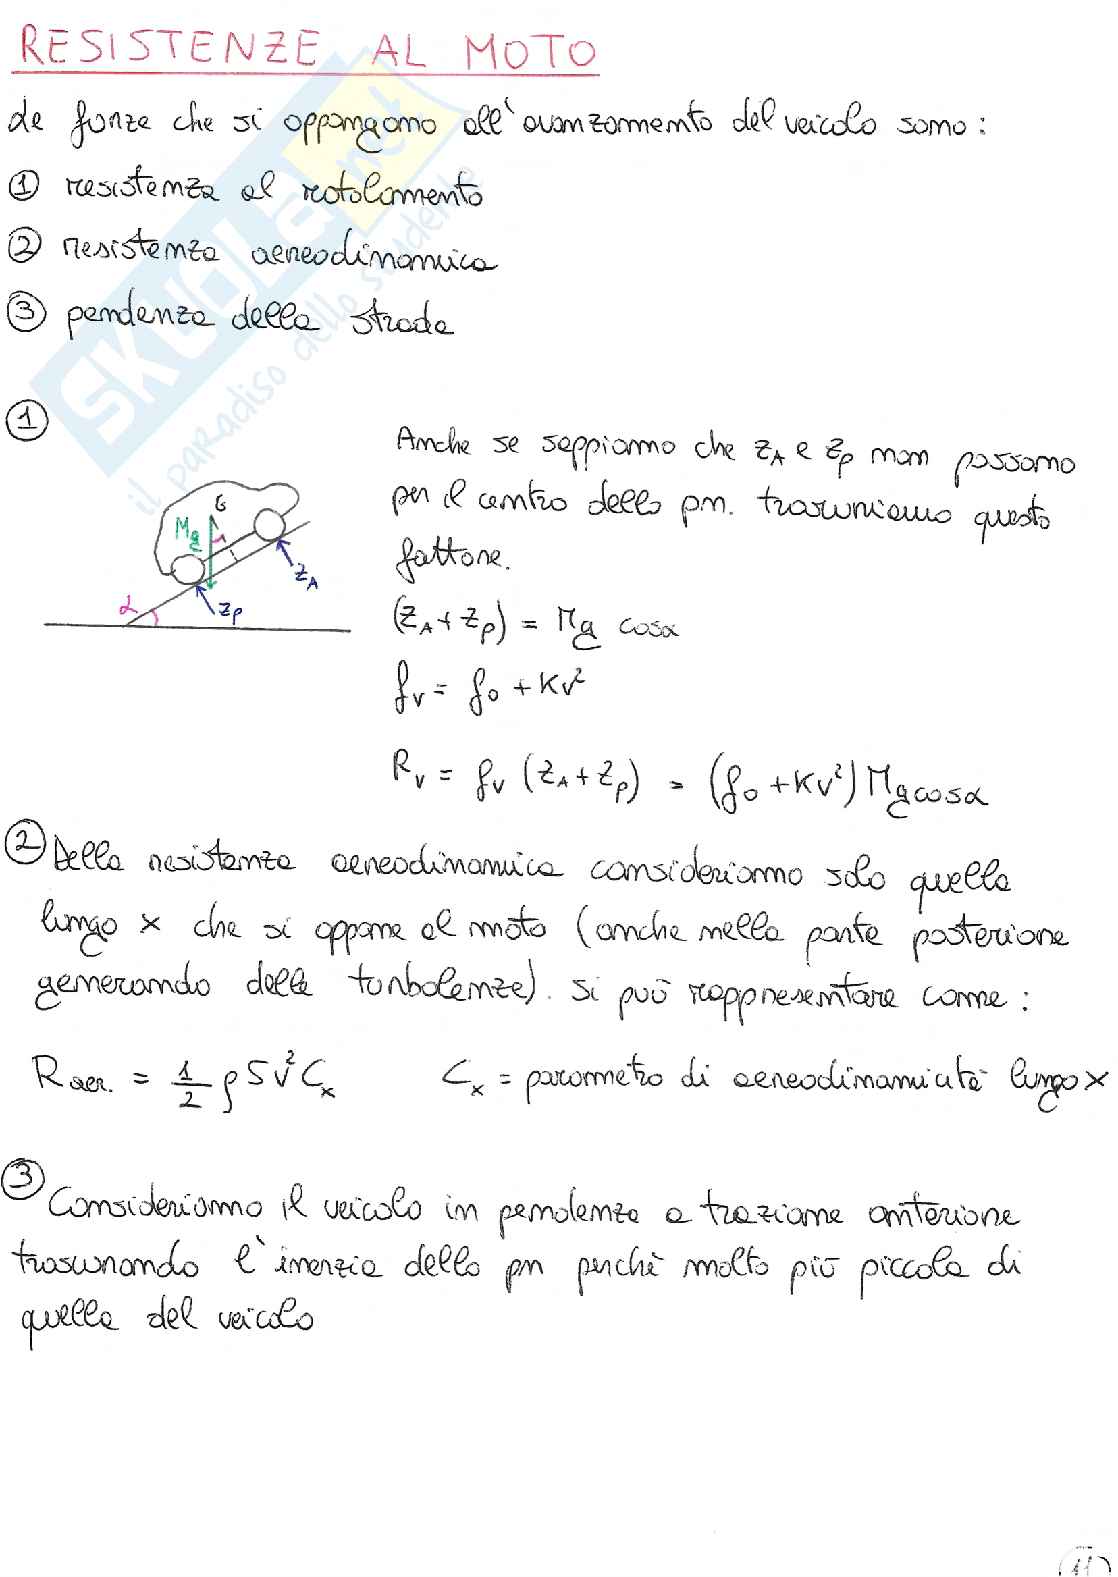 RESISTENZE AL MOTO
Le forze che si oppongono all'avanzamento del veicolo sono:
① resistenza al rotolamento
② resistenza aereodinamica
③ pendenza della strada
①
Anche se sappiamo che Z_A e Z_P non passano
per il centro dello pn. trascuriamo questo
fattore.
G
Mg
α
Z_A
Z_P
(Z_A + Z_P) = Mg cosα
f_v = f_0 + Kv²
R_v = f_v (Z_A + Z_P) = (f_0 + Kv²) Mg cosα
② Della resistenza aereodinamica consideriamo solo quella
lungo x che si oppone al moto (anche nella parte posteriore
generando delle turbolenze). Si può rappresentare come:
R aer. = 1/2 ρ S V² C_x C_x = parametro di aereodinamicità lungo x
③ Consideriamo il veicolo in pendenza a trazione anteriore
trascurando l'inerzia dello pn perchè molto più piccola di
quella del veicolo
SKUOLA.net
il paradiso dello studente
11